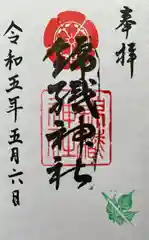 奉拝
錦織神社
令和五年五月六日